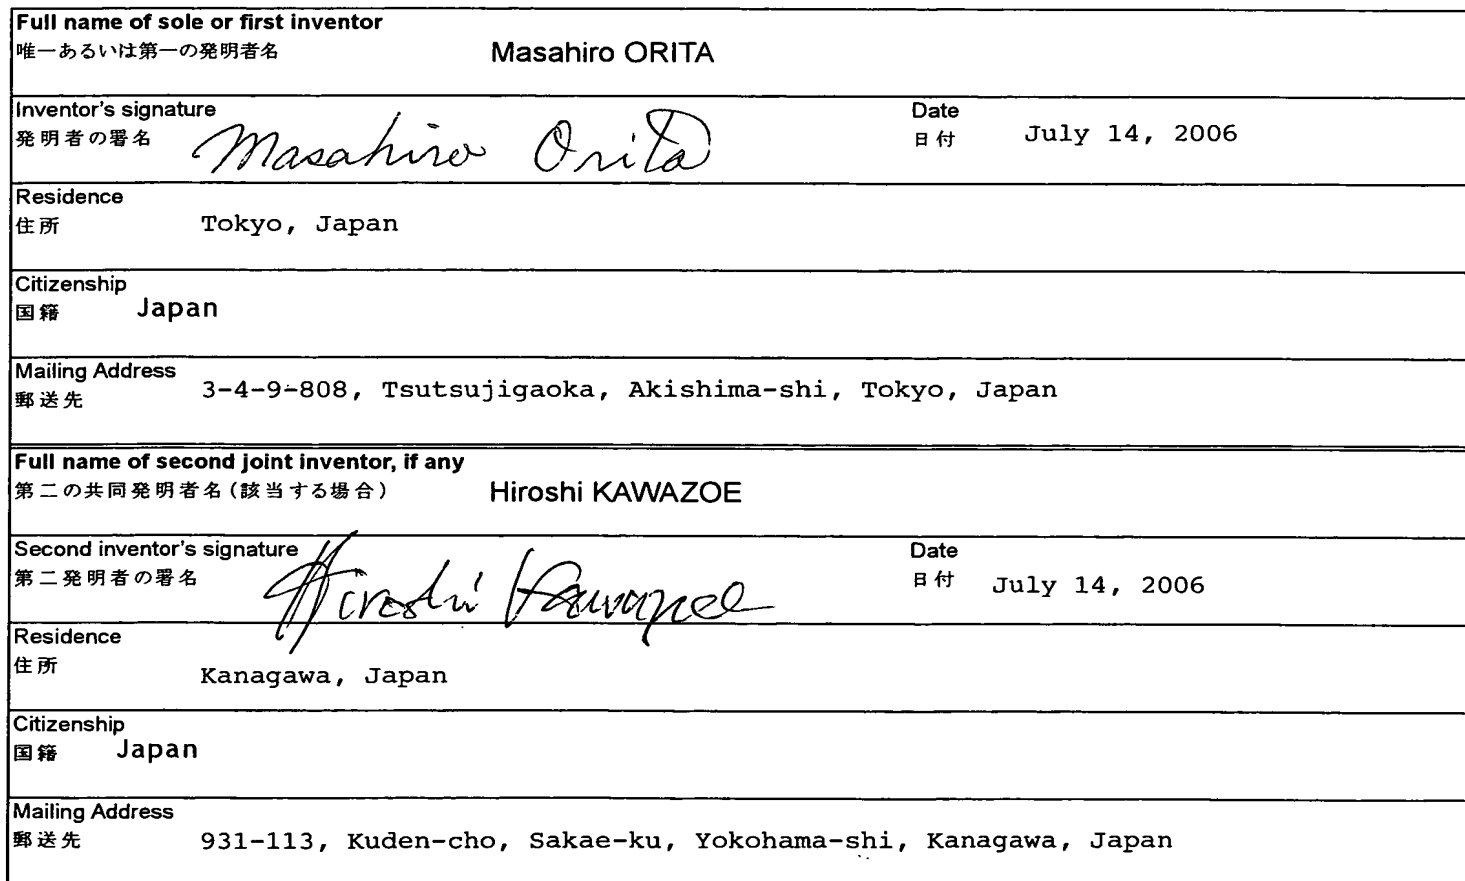 Full name of sole or first inventor
唯一あるいは第一の発明者名 Masahiro ORITA
Inventor's signature Date
発明者の署名 Masahiro Orita 日付 July 14, 2006
Residence
住所 Tokyo, Japan
Citizenship
国籍 Japan
Mailing Address
郵送先 3-4-9-808, Tsutsujigaoka, Akishima-shi, Tokyo, Japan
Full name of second joint inventor, if any
第二の共同発明者名(該当する場合) Hiroshi KAWAZOE
Second inventor's signature Date
第二発明者の署名 Hiroshi Kawazoe 日付 July 14, 2006
Residence
住所 Kanagawa, Japan
Citizenship
国籍 Japan
Mailing Address
郵送先 931-113, Kuden-cho, Sakae-ku, Yokohama-shi, Kanagawa, Japan